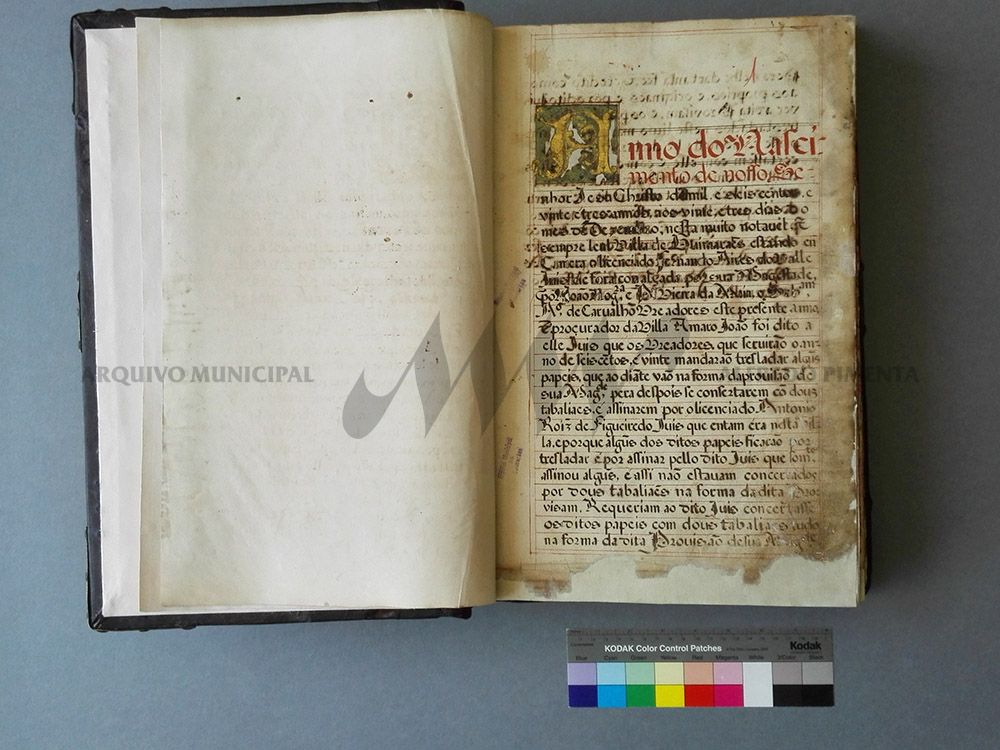 Anno do Nasci-
mento de nosso Se-
nhor Jesu Christo de mil, e seis centos, e
vinte e tres annos, aos vinte, e tres dias do
mes de Dezembro, nesta muito notauel, e
sempre leal Villa de Guimarães estando em
Camera o licenciado Fernando Aires do Valle
Juis de fora com alçada por sua Magestade,
e por João
de Carvalho Vreadores este presente anno,
e procurador da Villa Amaro João foi dito a
elle Juis que os Vreadores, que seruirão o an-
no de seiscẽtos, e vinte mandarão tresladar algũs
papeis, que ao diãte vão na forma da prouisão de
sua Magde pera despois se consertarem cõ dous
tabaliães, e assinarem por o licenciado Antonio
Roiz de Figueiredo Juis que entam era nesta vil
la, e porque algũs dos ditos papeis ficarão por
tresladar e por assinar pello dito Juis que somte
assinou algũs, e assi não estauam concertados
por dous tabaliaẽs na forma da dita Pro
visam. Requeriam ao dito Juis concertasse
os ditos papeis com dous tabaliaẽs tudo
na forma da dita Prouisão de sua Magde
ARQUIVO MUNICIPAL ALFREDO PIMENTA
KODAK Color Control Patches Kodak
Blue Cyan Green Yellow Red Magenta White 3/Color Black